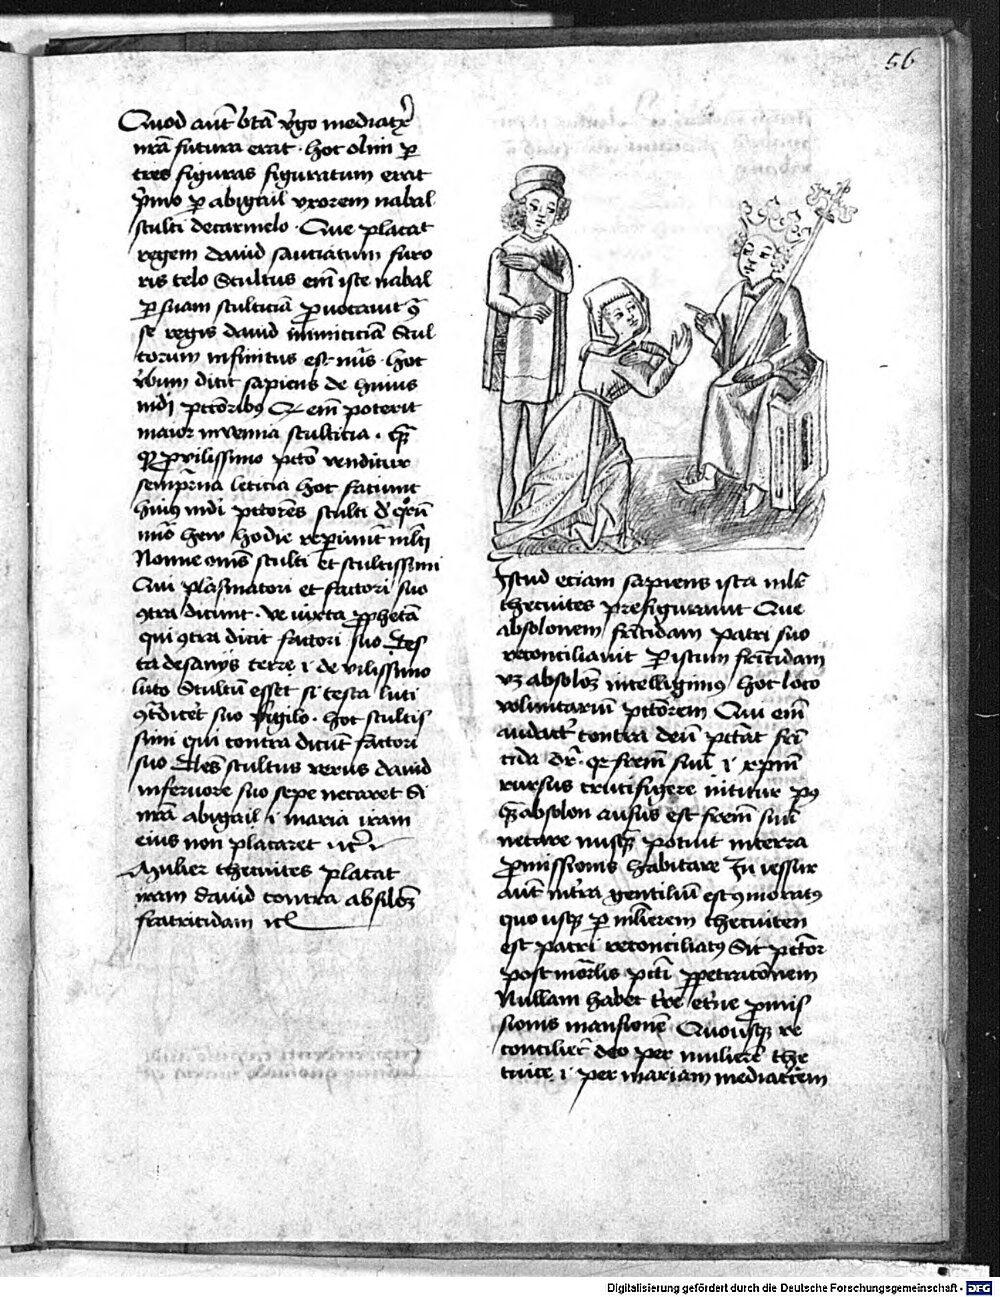 56
Quod aut̄ btā v̓go mediatꝛ̄
nr̄a futura erat · hoc olim ꝑ
tres figuras figuratum erat
p̓mo ꝑ abigail vxorem nabal
stulti decarmelo · Que placat
regem dauid sauciatum furo
ris telo Stultus em̄ iste nabal
ꝑ suam stulticiā ꝓuocauit
se regis dauid inimiciciā Stul
torum infinitus est nūs · hoc
v̓bum dicit sapiens de huius
mdi pctōribꝰ Qͥ em̄ poterit
maior inueniri stulticia · qȝ̄
qͥ ꝓ vilissimo pctō venditur
sempit̓na leticia hoc faciunt
huiꝰ mdi pctōres stulti
nūo heu hodie reꝑiunt̄ ml̄ti
Nonne om̄s stulti et stultissimi
Qui plasmatori et factori suo
ꝯtra dicunt · ve iuxta ꝓphetā
qui ꝯtra dicit factori suo Tes
ta desamijs terre i de vilissimo
luto Stultū esset si testa luti
ꝯt̓dicēt suo figilo · hoc stultis
simi qui contra dicūt factori
suo Hos stultus verus dauid
infurore suo sepe necaret Si
nr̄a abigail i maria iram
eius non placaret
Mulier thecuites placat
iram dauid contra absolōȝ
fratricidam
Istud eciam sapiens ista mlr̄
thecuites prefigurauit Que
absolonem fr̄icidam patri suo
reconciliauit ꝑ istum fr̄icidam
vȝ absolōȝ intelligimꝰ hoc loco
voluntariū pctōrem Qui em̄
audact̓ contra deū pctāt fr̄i
cida dr̄ · qr frēm suū i xp̄m
rursus crucifigere nititur pꝰ
qȝ absolon ausus est frēm suū
necare nusqȝ potuit interra
ꝓmissionis habitare In iessur
aut̄ int̓ra gentiliū est ꝯmoratꝰ
quo usqȝ ꝑ ml̄ierem thecuiten
est patri reconciliatꝰ Sic pctōr
post mōrlis pcti ꝑpetracōnem
Nullam habet t̄re et̓ne ꝓmis
sionis mansionē Quousqȝ re
concilier̄ deo per mulierē the
cuitē i per mariam mediatcēm
Digitalisierung gefördert durch die Deutsche Forschungsgemeinschaft - DFG